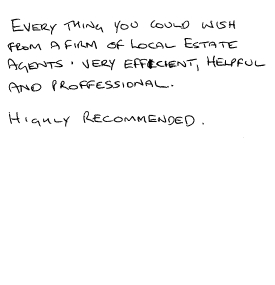 EVERY THING YOU COULD WISH
FROM A FIRM OF LOCAL ESTATE
AGENTS. VERY EFFICIENT, HELPFUL
AND PROFFESSIONAL.
HIGHLY RECOMMENDED.